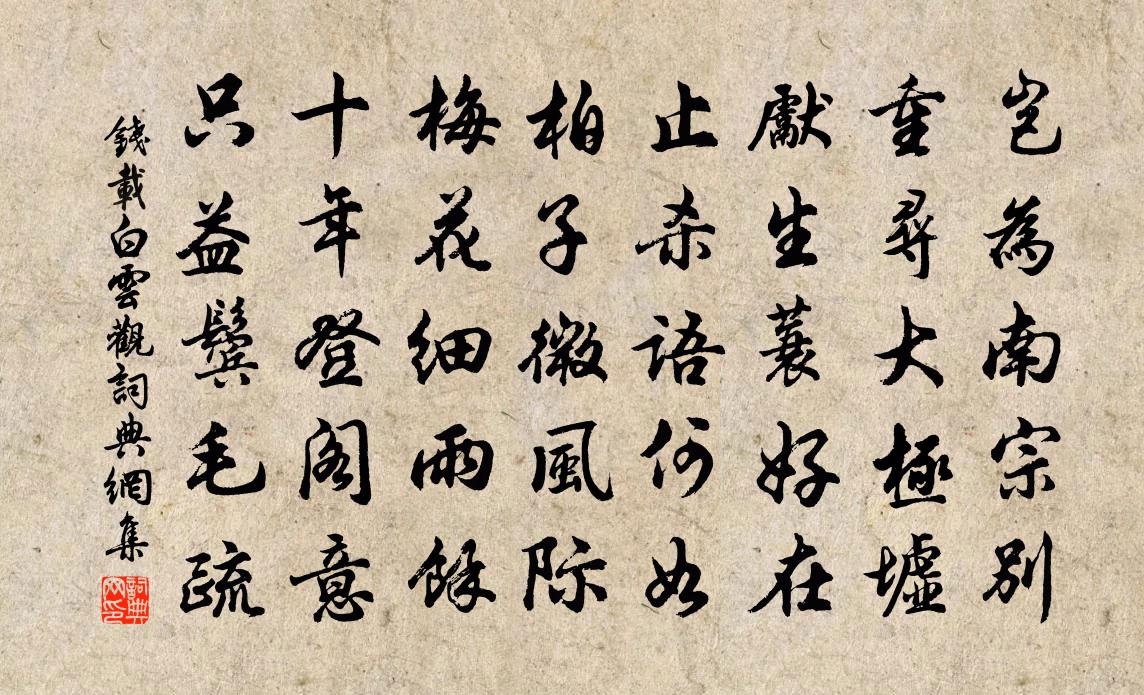 岂為南宗别
重尋大極墟
獻生蓑好在
止杀語何如
柏子微風际
梅花细雨餘
十年登阁意
只益鬓毛疏
錢載白雲觀詞典網集
詞典網印